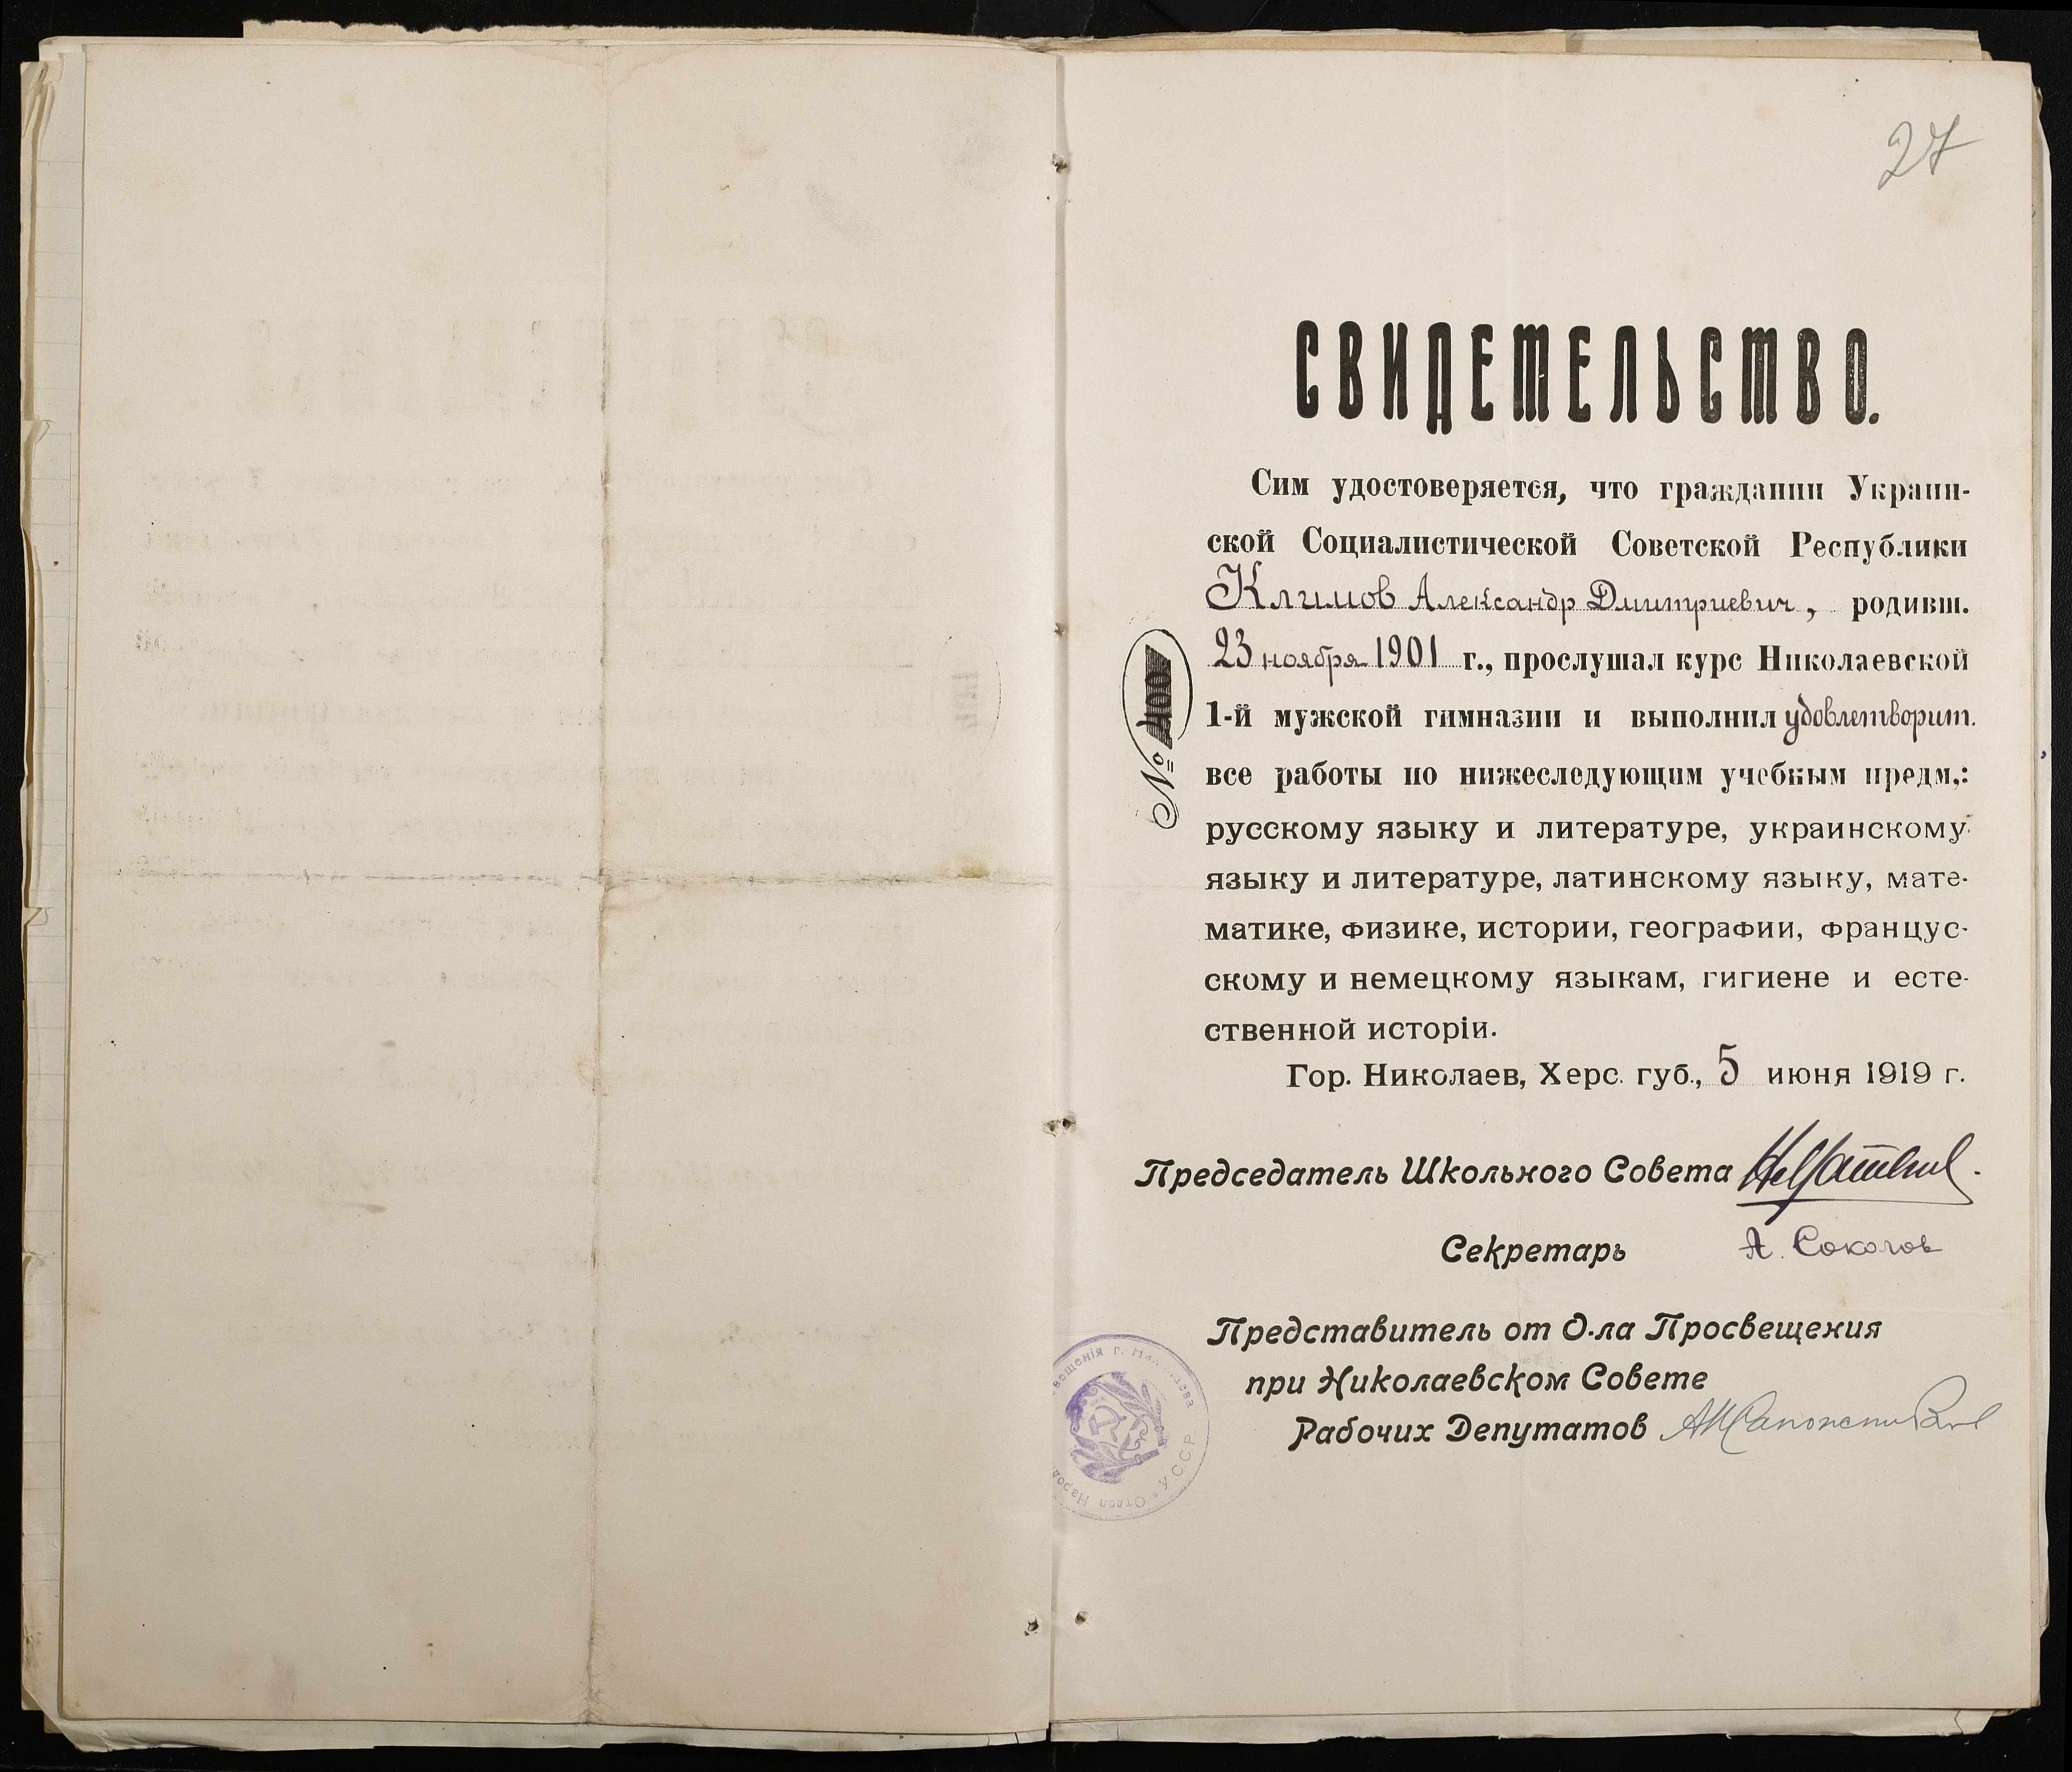 27
СВИДЕТЕЛЬСТВО.
Сим удостоверяется, что гражданин Украин-
ской Социалистической Советской Республики
Климов Александр Дмитриевич, родивш.
23 ноября 1901 г., прослушал курс Николаевской
1-й мужской гимназии и выполнил удовлетворит.
все работы по нижеследующим учебным предм.:
русскому языку и литературе, украинскому
языку и литературе, латинскому языку, мате-
матике, физике, истории, географии, француc-
скому и немецкому языкам, гигиене и есте-
ственной исторіи.
Гор. Николаев, Херс. губ., 5 июня 1919 г.
№ 400
Председатель Школьного Совета
Секретарь А. Соколов
Представитель от О-ла Просвещения
при Николаевском Совете
Рабочих Депутатов
Отдел Народ вещенія г. Николаева У.С.С.Р.